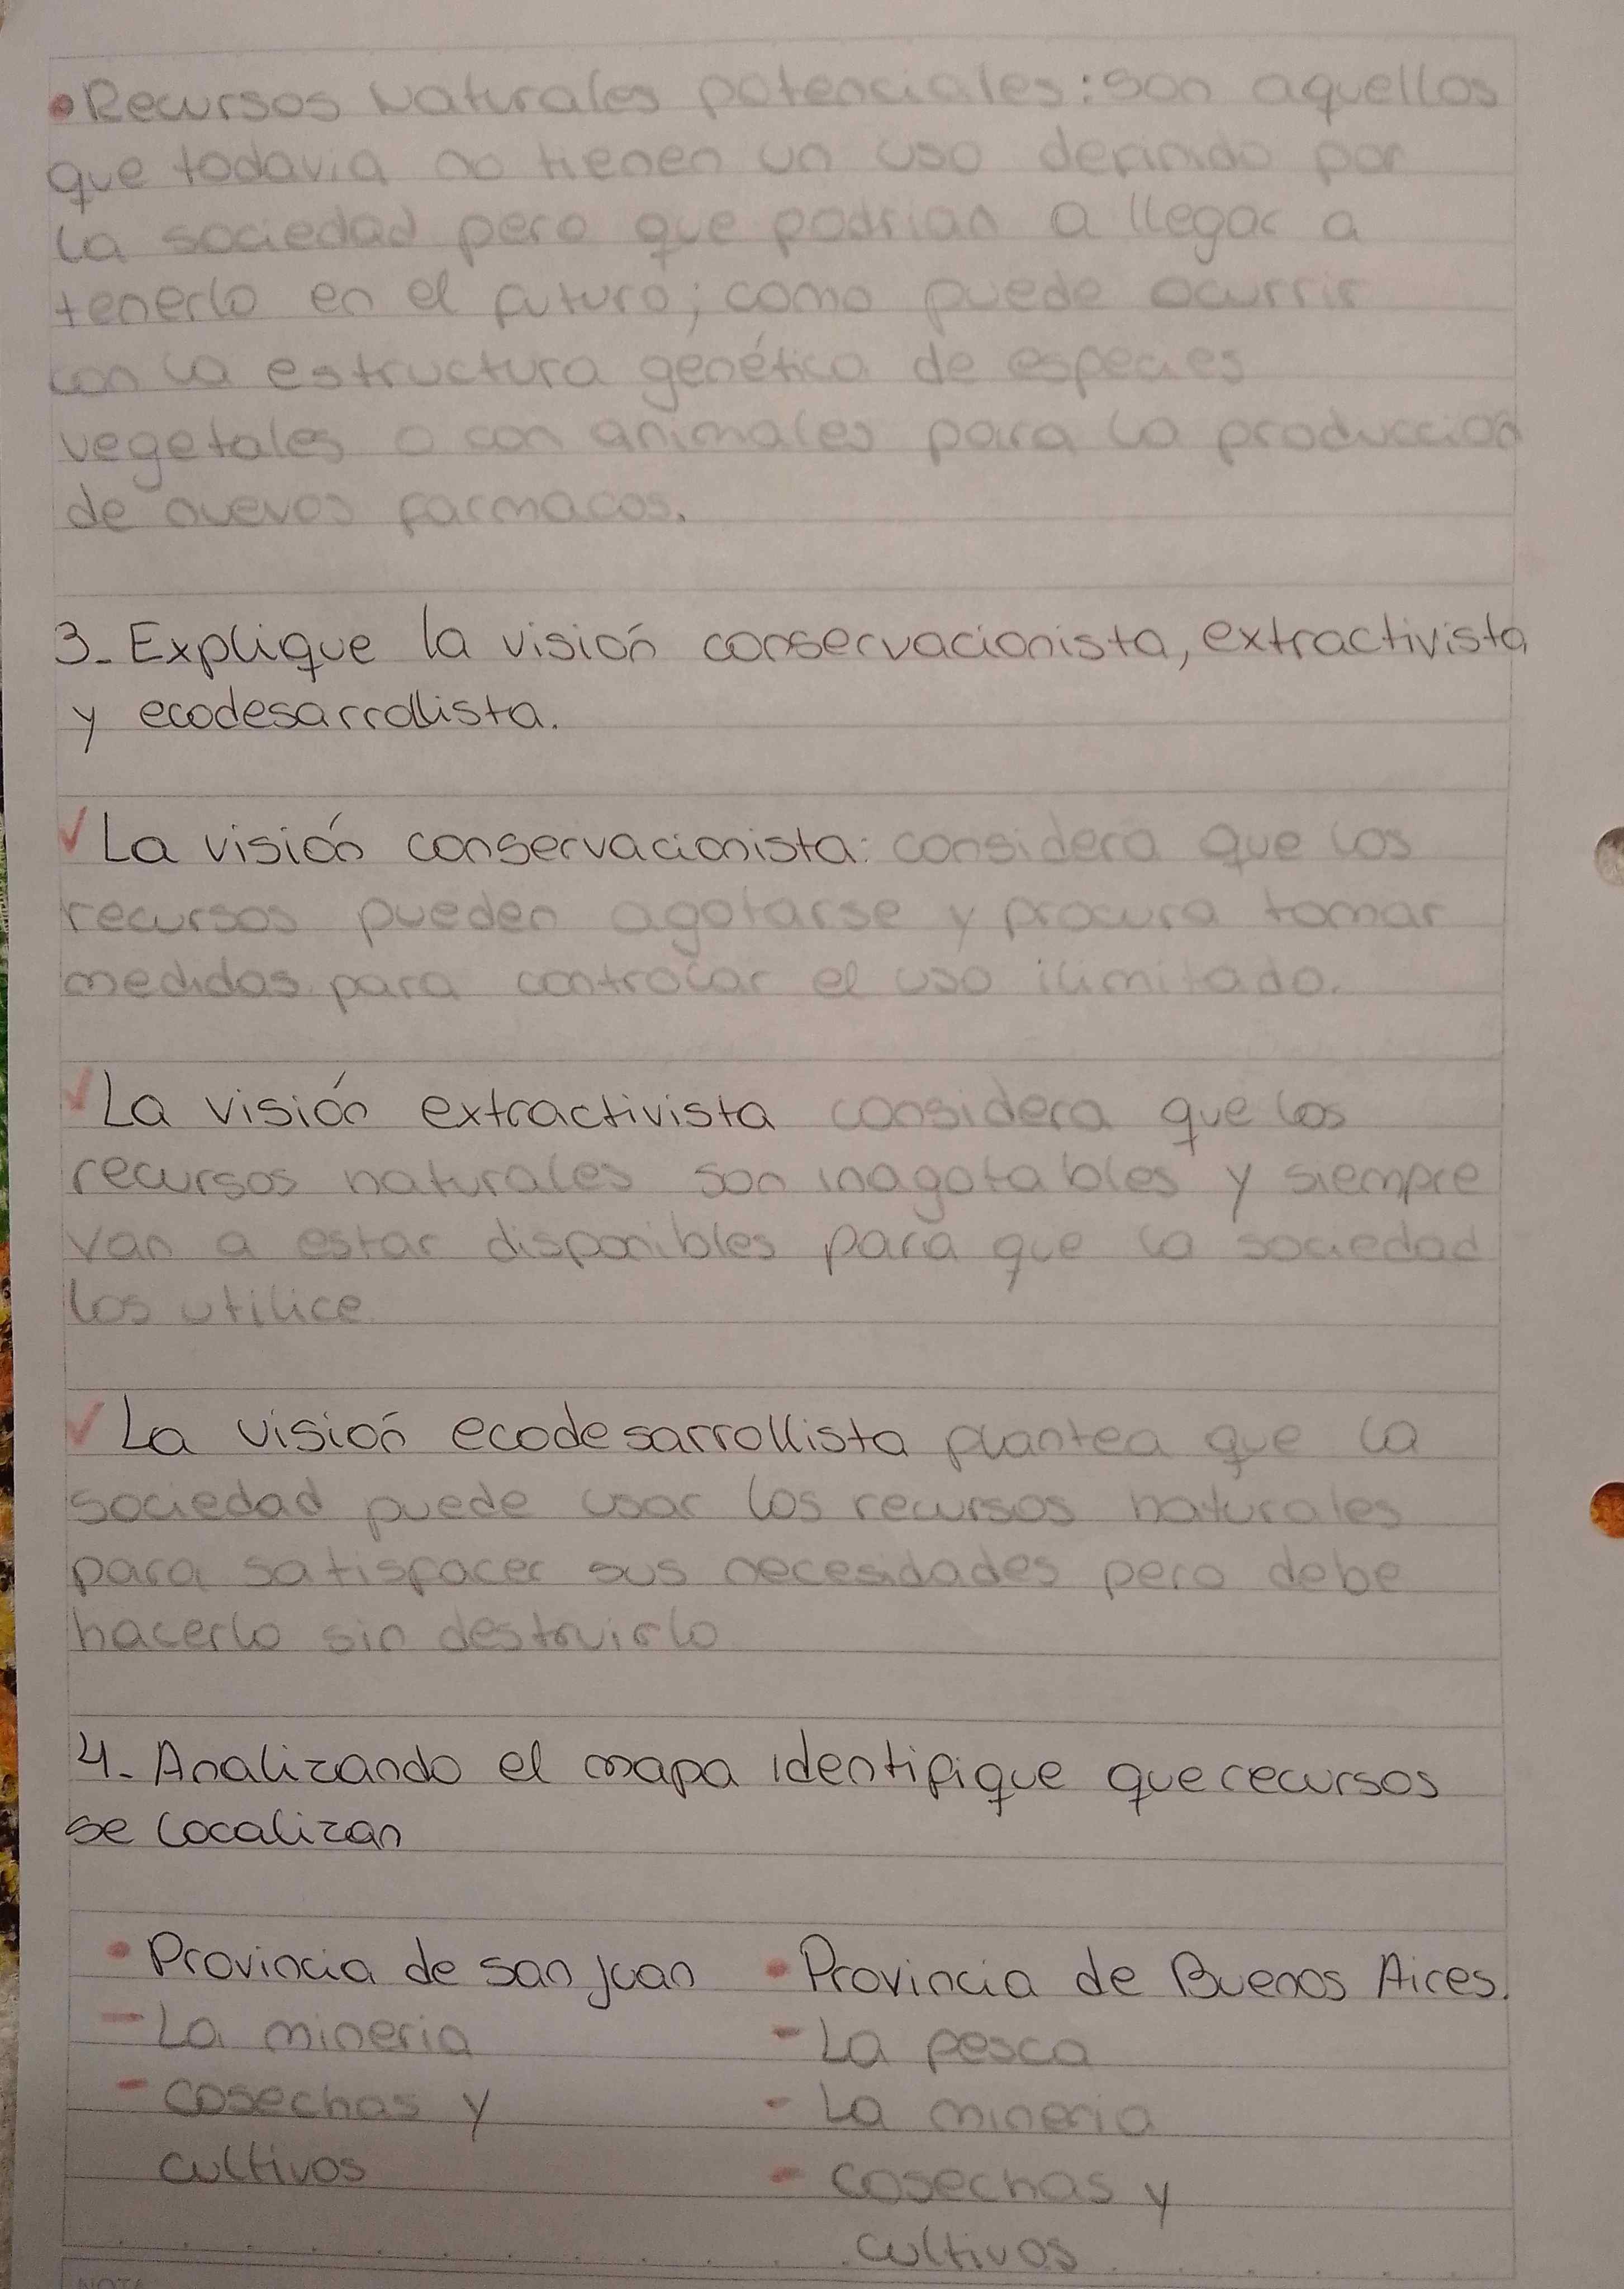 • Recursos Naturales potenciales: son aquellos
que todavia no tienen un uso definido por
la sociedad pero que podrian a llegar a
tenerlo en el futuro; como puede ocurrir
con la estructura genética de especies
vegetales o con animales para la producción
de nuevos farmacos.
3_ Explique la visión conservacionista, extractivista
y ecodesarrollista.
✓ La visión conservacionista: considera que los
recursos pueden agotarse y procura tomar
medidas para controlar el uso ilimitado.
✓ La visión extractivista considera que los
recursos naturales son inagotables y siempre
van a estar disponibles para que la sociedad
los utilice
✓ La visión ecodesarrollista plantea que la
sociedad puede usar los recursos naturales
para satisfacer sus necesidades pero debe
hacerlo sin destruirlo
4_ Analizando el mapa identifique que recursos
se localizan
• Provincia de san juan
- La mineria
- cosechas y
cultivos
• Provincia de Buenos Aires.
- La pesca
- La mineria
- cosechas y
cultivos
NOTA